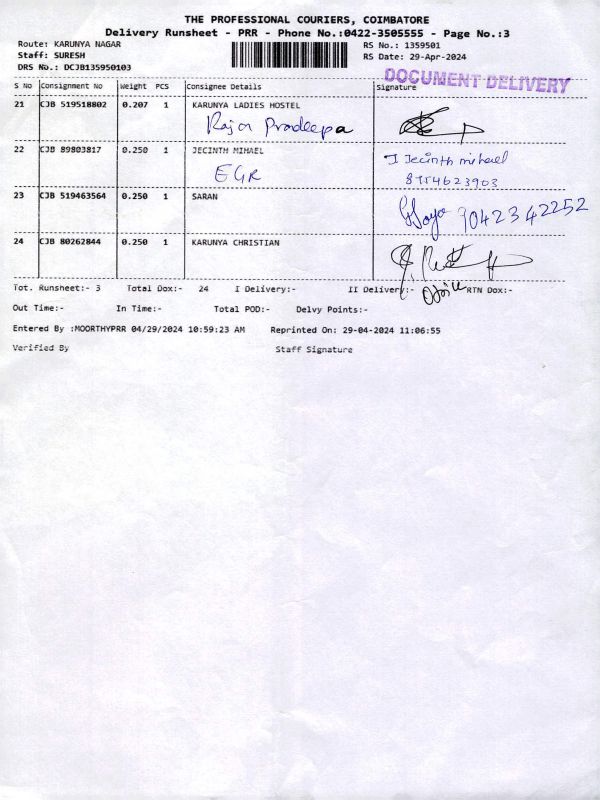 THE PROFESSIONAL COURIERS, COIMBATORE
Delivery Runsheet - PRR - Phone No.:0422-3505555 - Page No.:3
Route: KARUNYA NAGAR RS No.: 1359501
Staff: SURESH RS Date: 29-Apr-2024
DRS No.: DCJB135950103
DOCUMENT DELIVERY
S No Consignment No Weight PCS Consignee Details Signature
21 CJB 519518802 0.207 1 KARUNYA LADIES HOSTEL
Raja Pradeepa
22 CJB 89803817 0.250 1 JECINTH MIHAEL J Jecinth mihael
EGR 8754623903
23 CJB 519463564 0.250 1 SARAN 9042342252
24 CJB 80262844 0.250 1 KARUNYA CHRISTIAN
Tot. Runsheet:- 3 Total Dox:- 24 I Delivery:- II Delivery:- RTN Dox:-
Out Time:- In Time:- Total POD:- Delvy Points:-
Entered By :MOORTHYPRR 04/29/2024 10:59:23 AM Reprinted On: 29-04-2024 11:06:55
Verified By Staff Signature